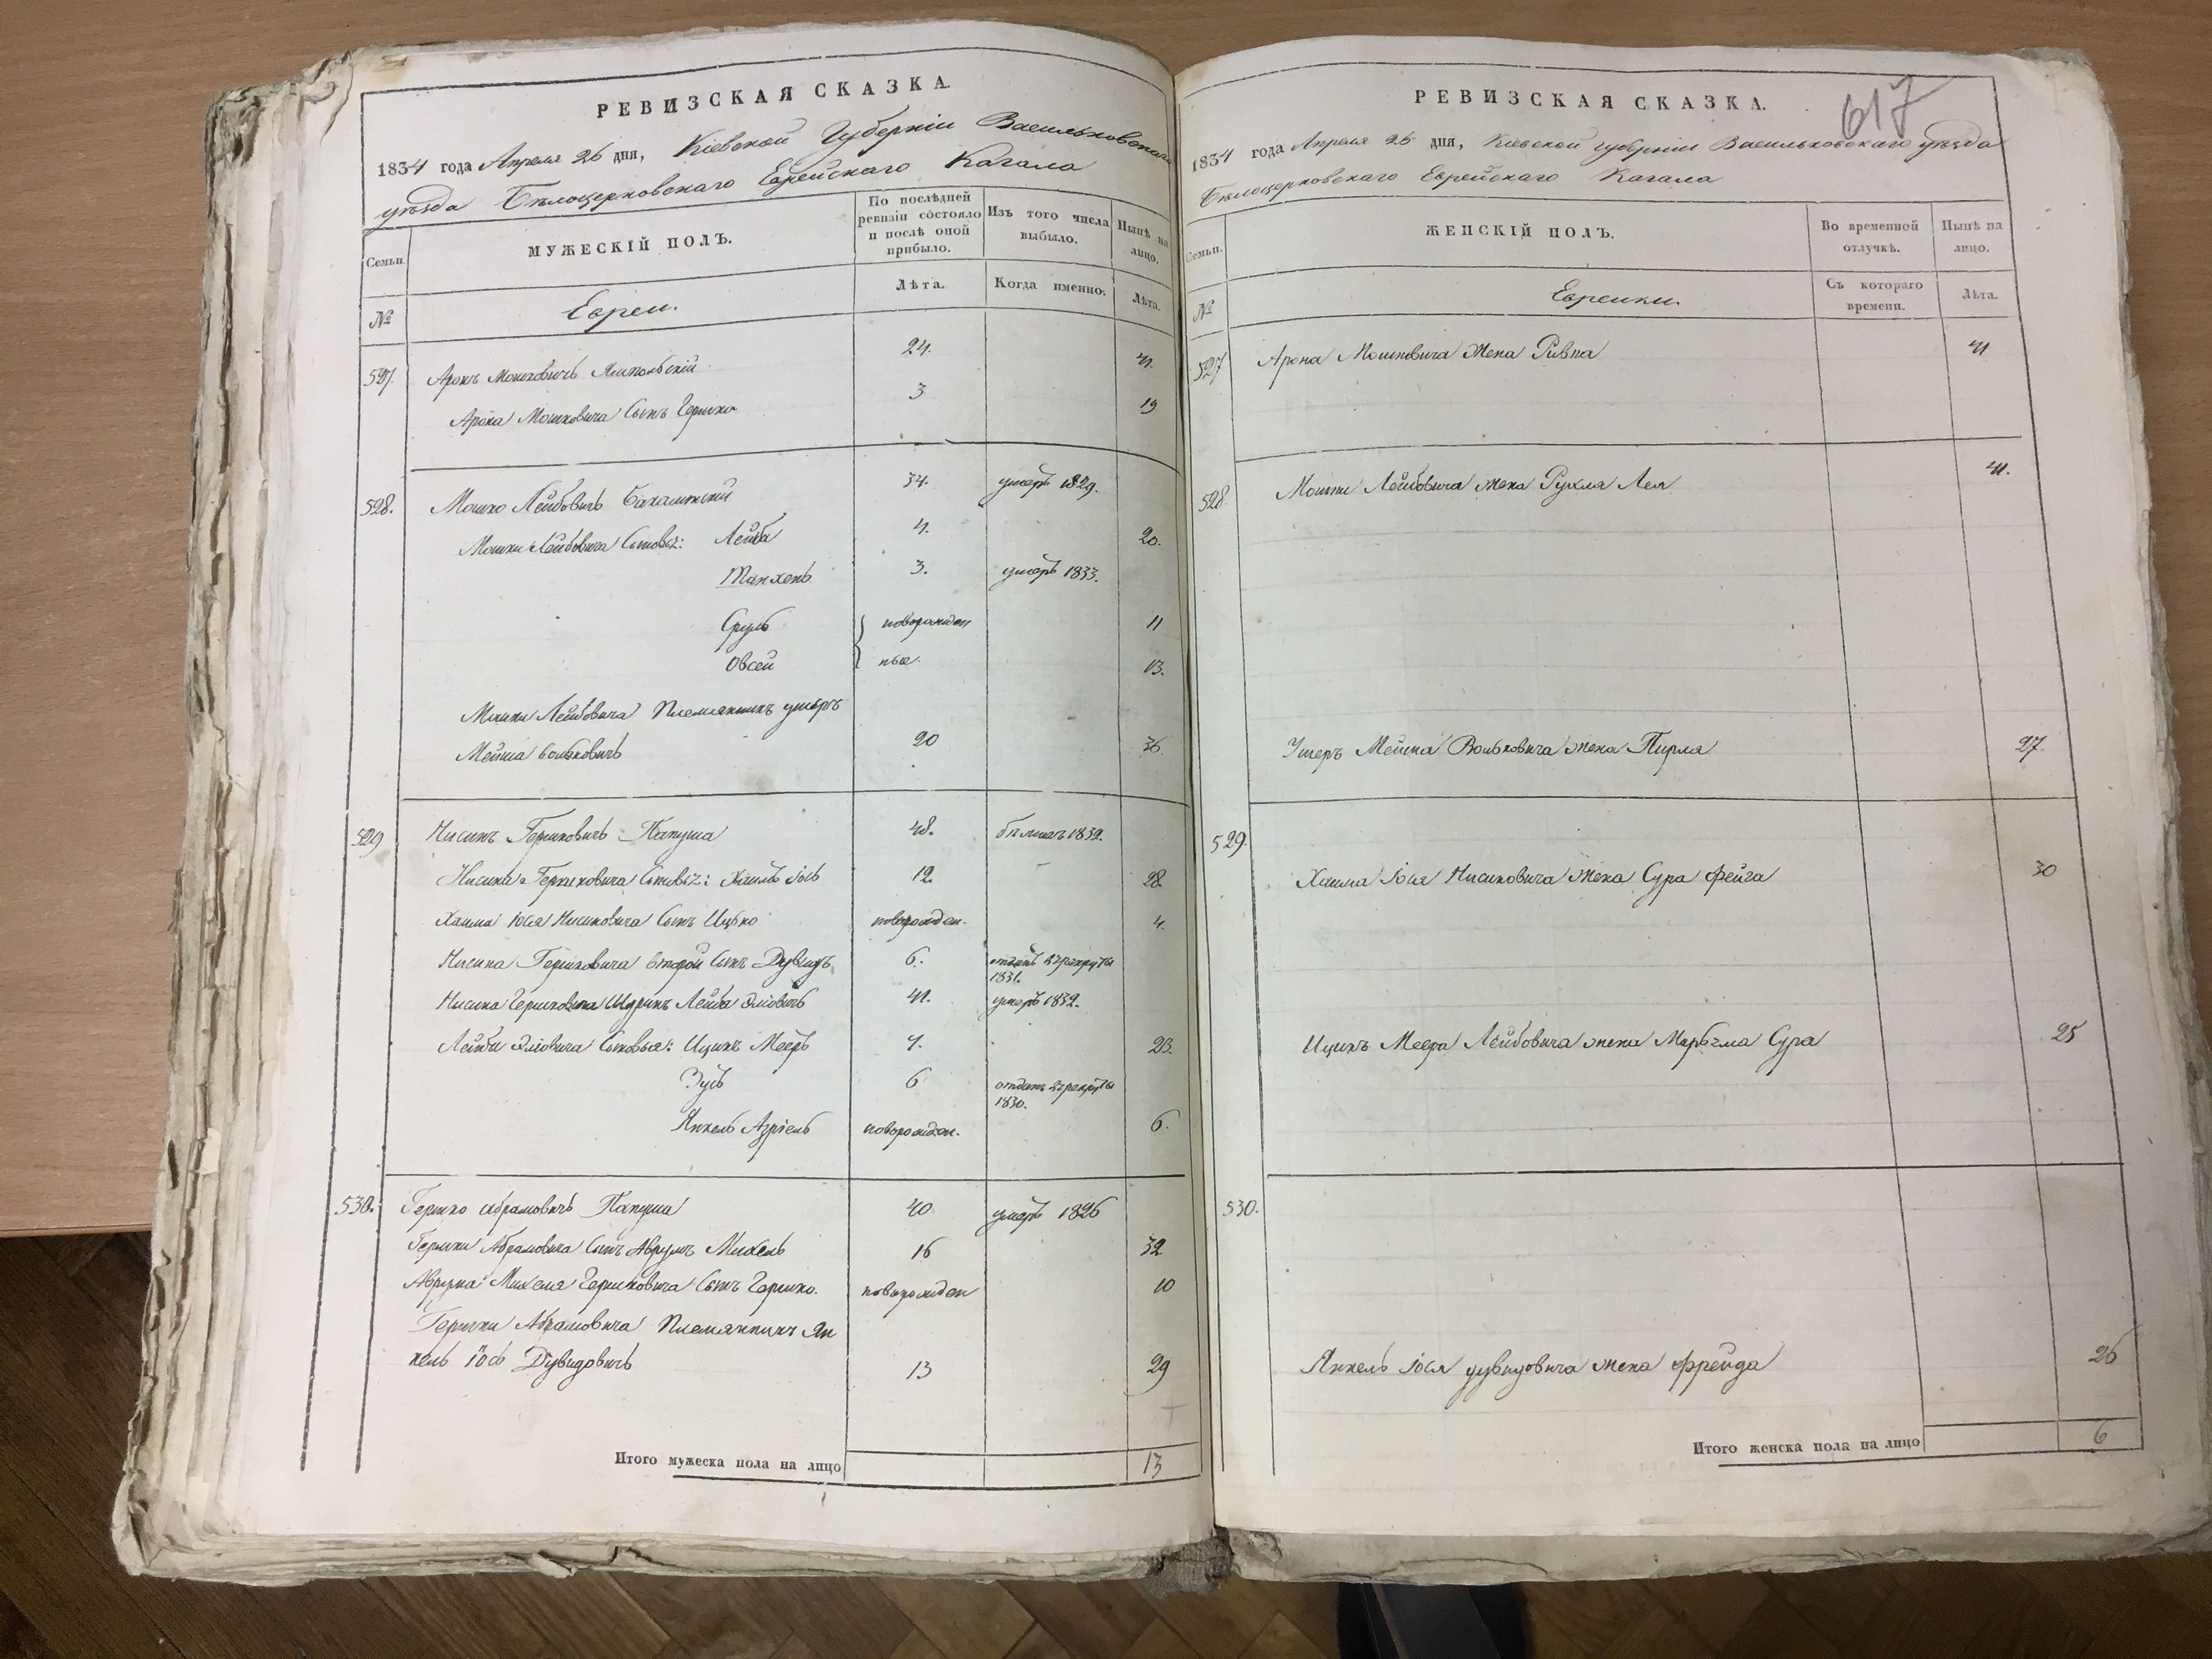 РЕВИЗСКАЯ СКАЗКА.
1834 года Апреля 26 дня, Кіевской Губерніи Васильковскаго
уѣзда Бѣлоцерковскаго Еврейскаго Кагала
Семьи.
МУЖЕСКІЙ ПОЛЪ.
По послѣдней ревизіи состояло и послѣ оной прибыло.
Изъ того числа выбыло.
Нынѣ на лицо.
№
Евреи.
Лѣта.
Когда именно.
Лѣта.
527. Аронъ Мошковичъ Ямпольскій 24. 41.
Арона Мошковича Сынъ Гершко 3 19
528. Мошко Лейбовичъ 34. умеръ 1829.
Мошки Лейбовича Сыновья: Лейба 4. 20.
Танхень 3. умеръ 1833.
Сруль новорожден 11
Овсей ные. 13.
Мошки Лейбовича Племянникъ Ушеръ
Мейша Вольковичъ 20 36.
529 Нисинъ Гершковичъ Папуша 48. 1832.
Нисина Гершковича Сыновья: Хаимъ Іось 12. 28.
Хаима Іося Нисиновича Сынъ Ицько новорожден. 4.
Нисина Гершковича второй Сынъ Дувидъ 6. отданъ въ рекруты 1831.
Нисина Гершковича Шуринъ Лейба Эліовичъ 41. умеръ 1832.
Лейбы Эліовича Сыновья: Ицикъ Мееръ 7. 23.
Зусь 6 отданъ въ рекруты 1830.
Янкель Азріель новорожден. 6.
530. Гершко Абрамовичъ Папуша 40 умеръ 1826
Гершки Абрамовича Сынъ Аврумъ Михель 16 32
Аврума Михеля Гершковича Сынъ Гершко. новорожден 10
Гершки Абрамовича Племянникъ Ян
кель Іось Дувидовичъ 13 29
Итого мужеска пола на лицо 13
РЕВИЗСКАЯ СКАЗКА.
617
1834 года Апреля 26 дня, Кіевской губерніи Васильковскаго уѣзда
Бѣлоцерковскаго Еврейскаго Кагала
Семьи.
ЖЕНСКІЙ ПОЛЪ.
Во временной отлучкѣ.
Нынѣ на лицо.
№
Еврейки.
Съ котораго времени.
Лѣта.
527 Арона Мошковича Жена Ривка 41
528 Мошки Лейбовича жена Рухля Лея 41.
Ушеръ Мейша Вольковича жена Пирля 27
529.
Хаима Іося Нисиновича жена Сура Фейга 30
Ицикъ Меера Лейбовича жена Сура 25
530.
Янкель Іося Дувидовича жена Фрейда 26
Итого женска пола на лицо 6